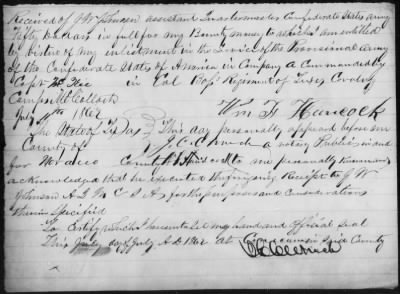 Received of J W Johnson assistant Quartermaster Confederate States Army
Fifty Dollars in full for my Bounty money to which I am entitled
by virtue of my enlistment in the Service of the Provisional Army
of the Confederate States of America in Company A Commanded by
Capt McKee in Col Regiment of Texas Cavalry
Camp McCulloch
July 1862 Wm F Hancock
The State of Texas This day personally appeared before me
County of J. C. Church a notary Public in and
for Navarro County to me personally known and
acknowledged that he executed the foregoing Receipt to J W
Johnson A Q M C S A for the purposes and considerations
therein specified
To Certify which I hereunto set my hand and official seal
This day of July A D 1862 at County